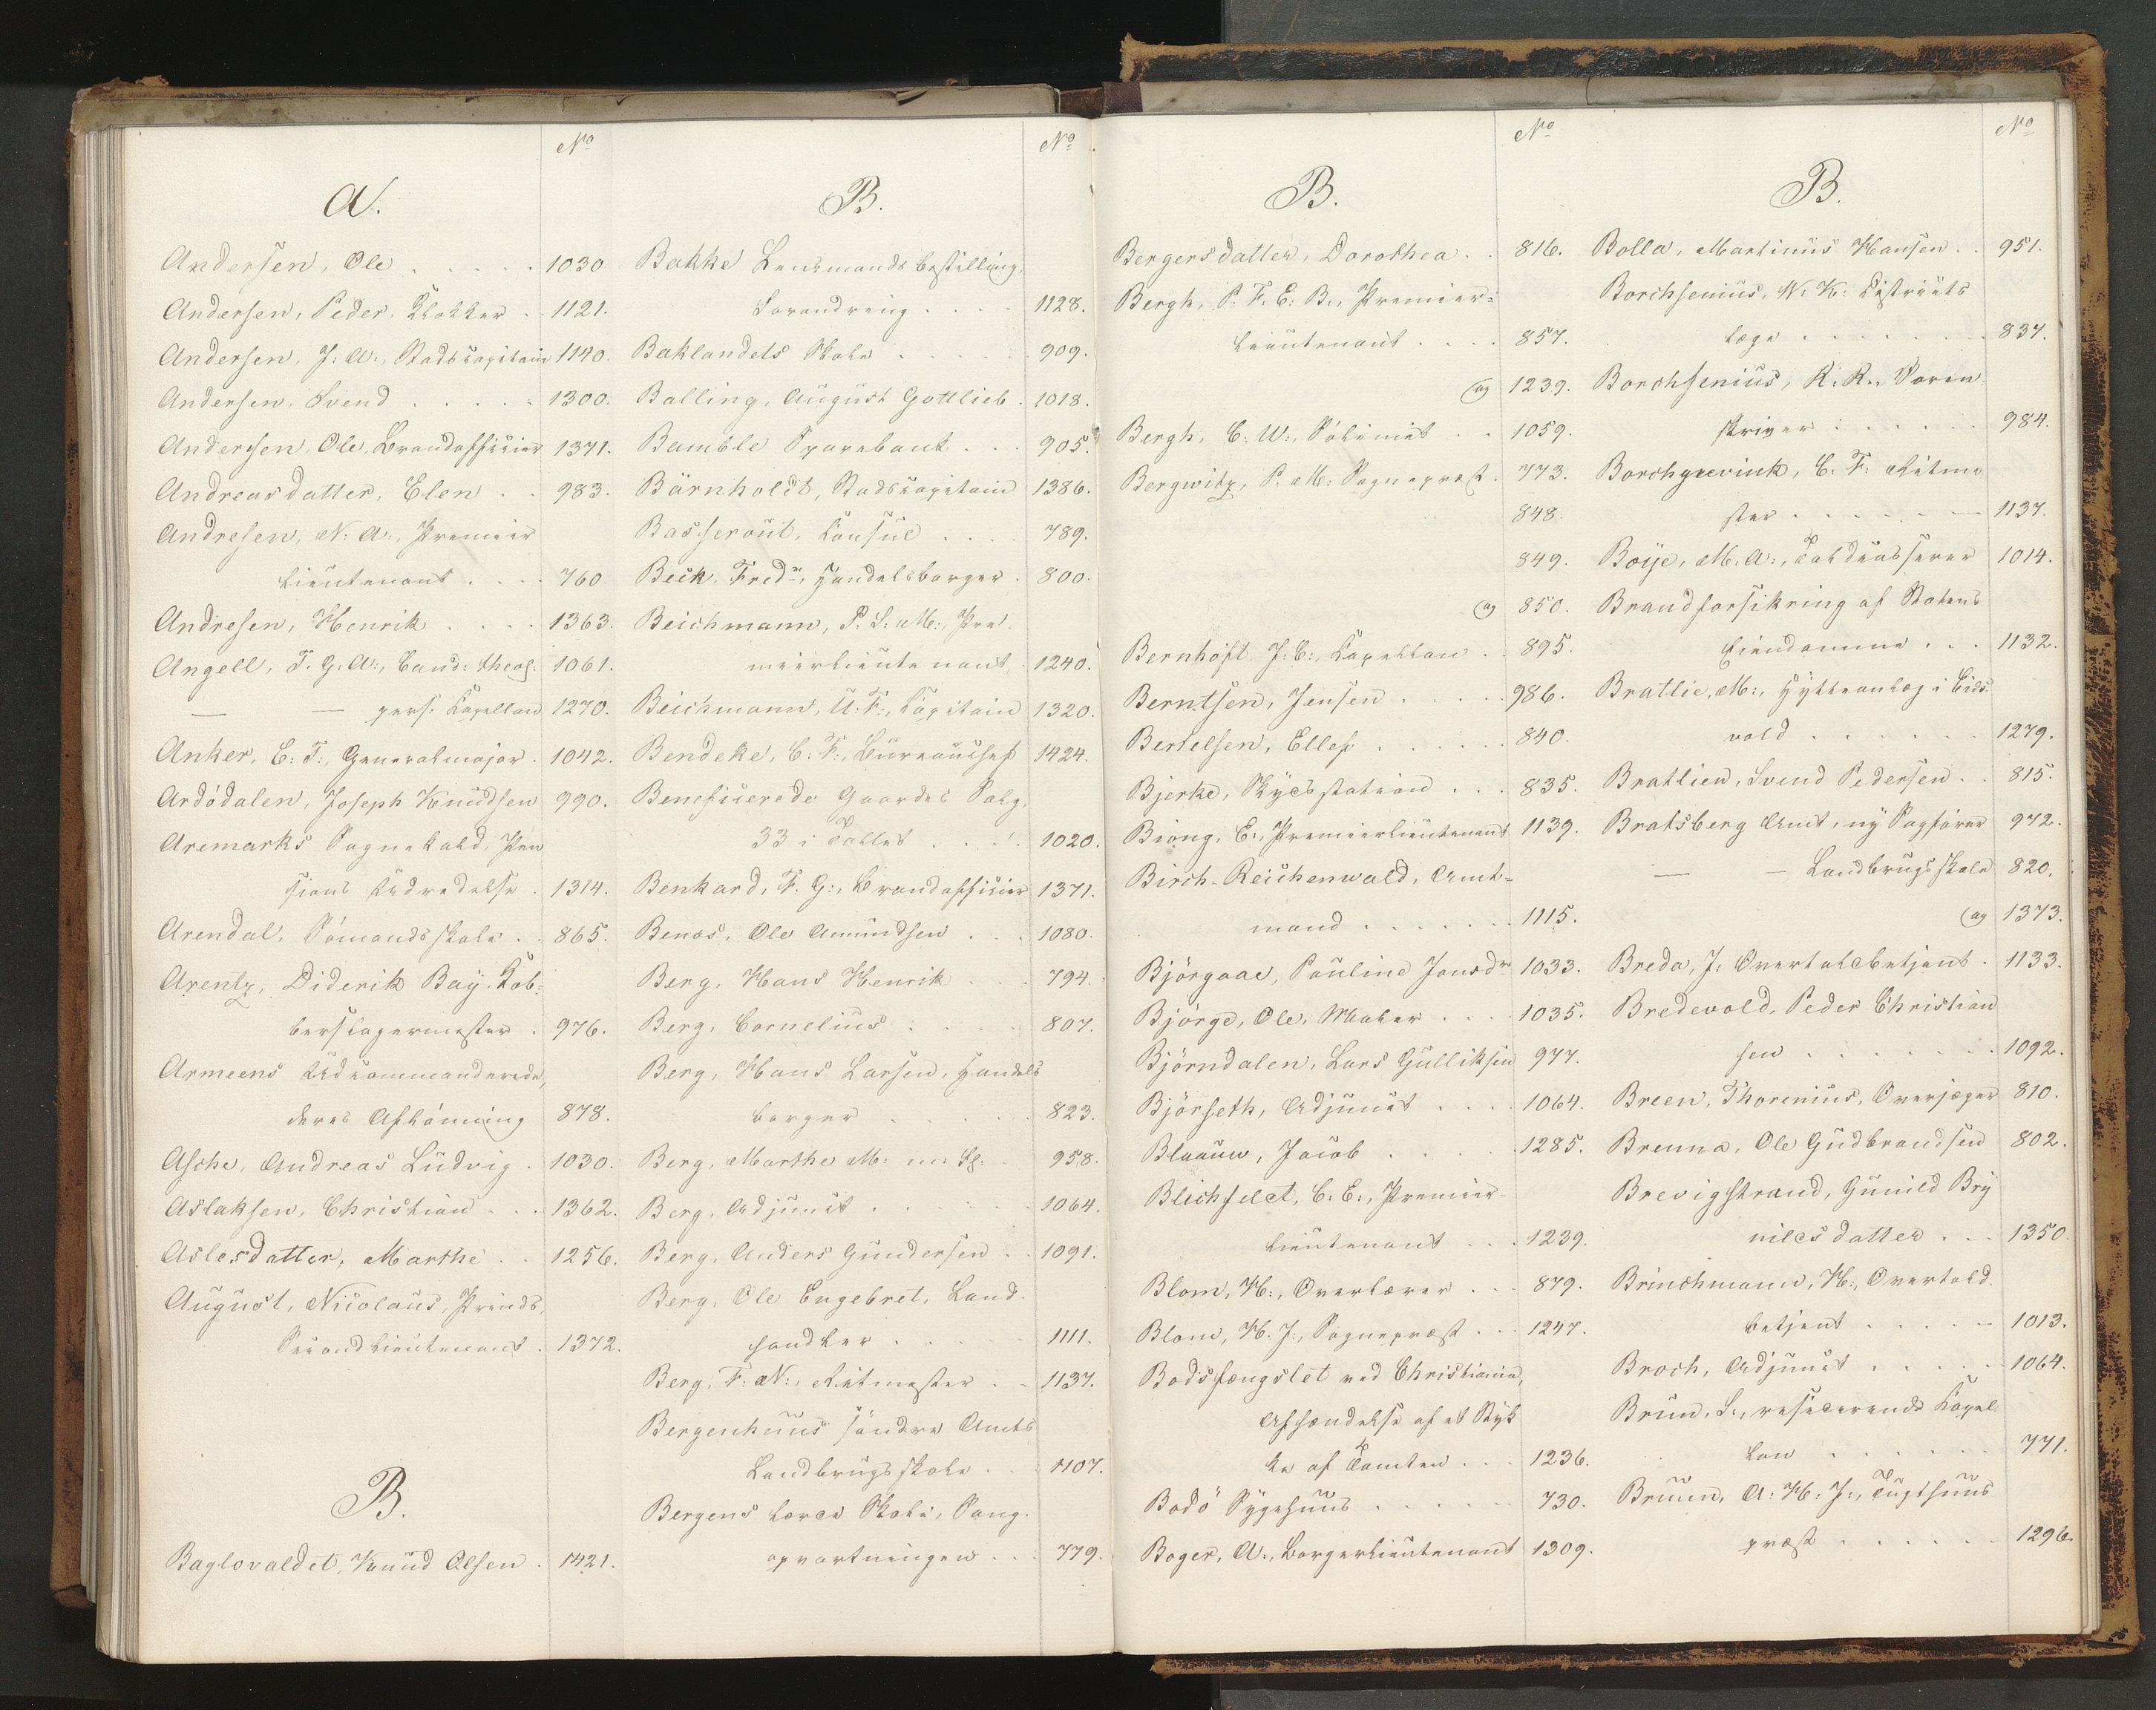 No
A.
Andersen, Ole . . . . . 1030
Andersen, Peder, Klokker . 1121.
Andersen, J: A:, Stadscapitain 1140.
Andersen, Svend . . . . . 1300.
Andersen, Ole, Brandofficier 1371.
Andreasdatter, Elen . . 983.
Andresen, N: A:, Premier
lieutenant . . . . 760
Andresen, Henrik . . . . 1363.
Angell, T. G. A:, Cand: theol: 1061.
— — pers: Kapellan 1270.
Anker, E: T:, Generalmajor . 1042.
Ardödalen, Joseph Knudsen 990.
Aremarks Sognekald, Pen
sions Udredelse . 1314.
Arendal, Sömandsskole . . 865.
Arentz, Diderik Bay, Kob-
berslagermester . 976.
Armeens Udkommanderede,
deres Aflönning 878.
Asche, Andreas Ludvig . 1030.
Aslaksen, Christian . . . 1362.
Aslesdatter, Marthe . . 1256.
August, Nicolaus, Prinds,
Secondlieutenant . 1372.
B.
Baglovaldet, Knud Olsen . 1421.
No
B.
Bakke Lensmandsbestilling,
Forandring . . . . 1128.
Baklandets Skole . . . . . 909.
Balling, August Gottlieb . 1018.
Bamble Sparebank . . . 905.
Bärnholdt, Stadscapitain 1386.
Basserout, Consul . . . . 789.
Beck, Fredr., Handelsborger . 800.
Beichmann, P. S: M:, Pre-
mierlieutenant . 1240.
Beichmann, U: F:, Capitain 1320.
Bendeke, C: F:, Bureauchef 1424.
Beneficerede Gaardes Salg,
33 i Tallet . . . . 1020.
Benkard, F. G:, Brandofficier 1371.
Benos, Ole Amundsen . . . 1080.
Berg, Hans Henrik . . . 794.
Berg, Cornelius . . . . . 807.
Berg, Hans Larsen, Handels
borger . . . . . 823.
Berg, Marthe M: m: fl: . 958.
Berg, Adjunct . . . . . . 1064.
Berg, Anders Gundersen . . 1091.
Berg, Ole Engebret, Land-
handler . . . . . 1111.
Berg, F: N:, Ritmester . . 1137.
Bergenhuus söndre Amts
Landbrugsskole . . . 1107.
Bergens lærde Skole, Sang-
opvartningen . . . 779.
No
B.
Bergersdatter, Dorothea . . 816.
Bergh, P. F. E: B:, Premier-
lieutenant . . . . 857.
og 1239.
Bergh, C: W:, Polinint . . 1059.
Bergwitz, P. M: Sognepræst . 773.
848.
849.
og 850.
Bernhoft J: C:, Kapellan . . 895.
Berntsen, Jensen . . . . . 986.
Bertelsen, Ellef . . . . . . 840.
Bjerke, Skydsstation . . . 835.
Biong, E:, Premierlieutenant 1139.
Birch-Reichenwald, Amt-
mand . . . . . . . 1115.
Björgaae, Pauline Jonsdr 1033.
Björge, Ole, Maler . . . 1035.
Björndalen, Lars Gulliksen 977.
Björseth, Adjunct . . . . 1064.
Blaauw, Jacob . . . . . 1285.
Blichfelet, C: E:, Premier-
lieutenant . . . 1239.
Blom, H:, Overlærer . . . 879.
Blom, H. J:, Sognepræst . . . 1247.
Bodsfængslet ved Christiania,
Afhændelse af et Styk
ke af Tomten . . . 1236.
Bodö Sygehuus . . . . . . 730.
Boger, A:, Borgerlieutenant 1309.
No
B.
Bolla, Martinus Hansen . . 951.
Borchsenius, N: K: Districts
læge . . . . . . . 837.
Borchsenius, R. R:, Soren-
skriver . . . . . . 984.
Borchgrevink, C: F: Ritme
ster . . . . . . . 1137.
Boije, M. A:, Toldcasserer 1014.
Brandforsikring af Statens
Eiendomme . . . 1132.
Bratlie, M:, Hytteanlæg i Eids-
vold . . . . . . . 1279.
Bratlien, Svend Pedersen . . 815.
Bratsberg Amt, ny Sagförer 972.
— — Landbrugsskole 820.
og 1373.
Breda, J: Overtoldbetjent . 1133.
Bredevold, Peder Christian
sen . . . . . . . 1092.
Breen, Thorenius, Overjæger 810.
Brenna, Ole Gudbrandsen 802.
Brevigstrand, Gunild Bry
nilds datter . . . 1350.
Brinchmann, H:, Overtold-
betjent . . . . . 1013.
Broch, Adjunct . . . . . 1064.
Brun, S:, residerende Kapel
lan . . . . . . . 771.
Bruun, A: H: J:, Tugthuus
præst . . . . . . 1296.